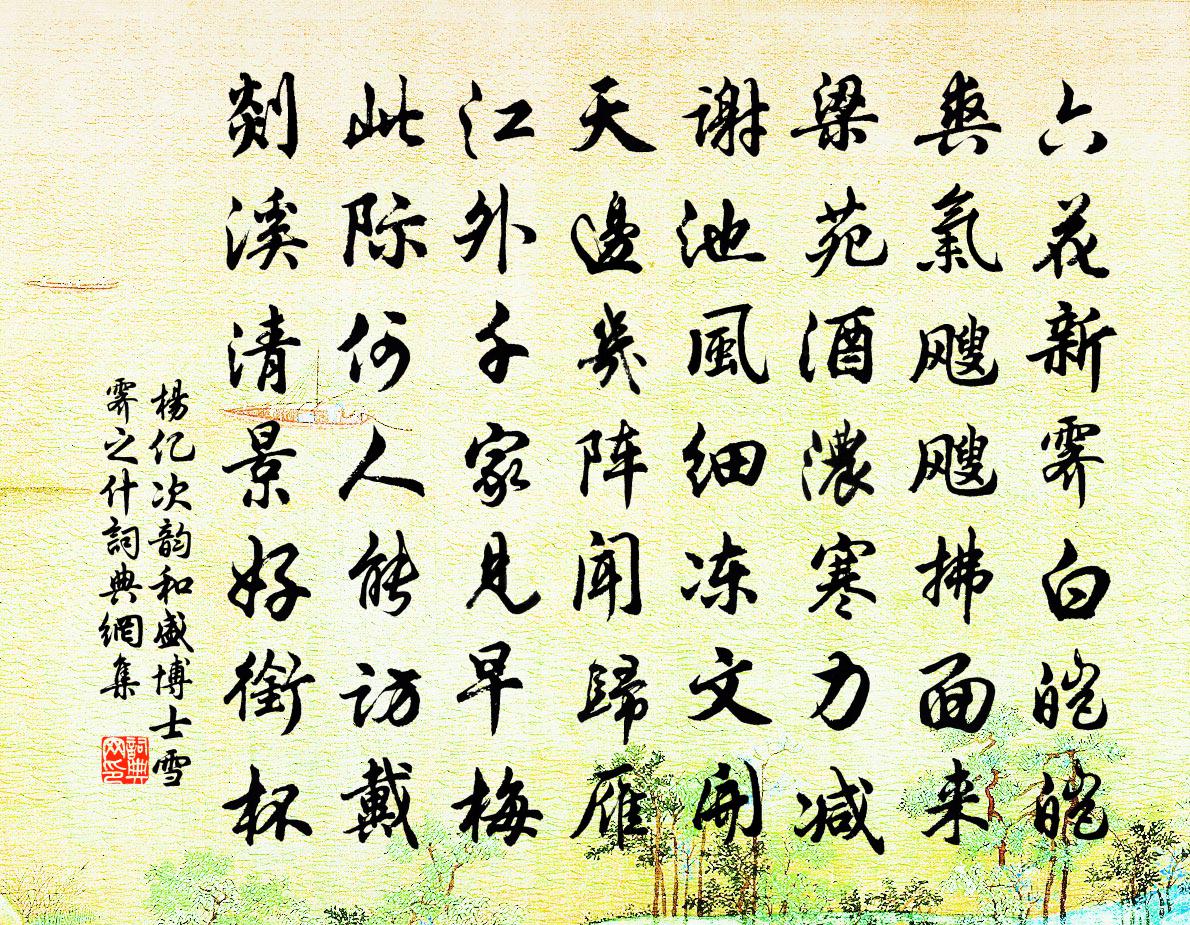 六花新霽白皚皚
爽氣颼颼拂面来
梁苑酒濃寒力减
謝池風细冻文開
天邊幾阵聞歸雁
江外千家見早梅
此际何人能訪戴
剡溪清景好銜杯
楊亿次韵和盛博士雪
霽之什詞典網集